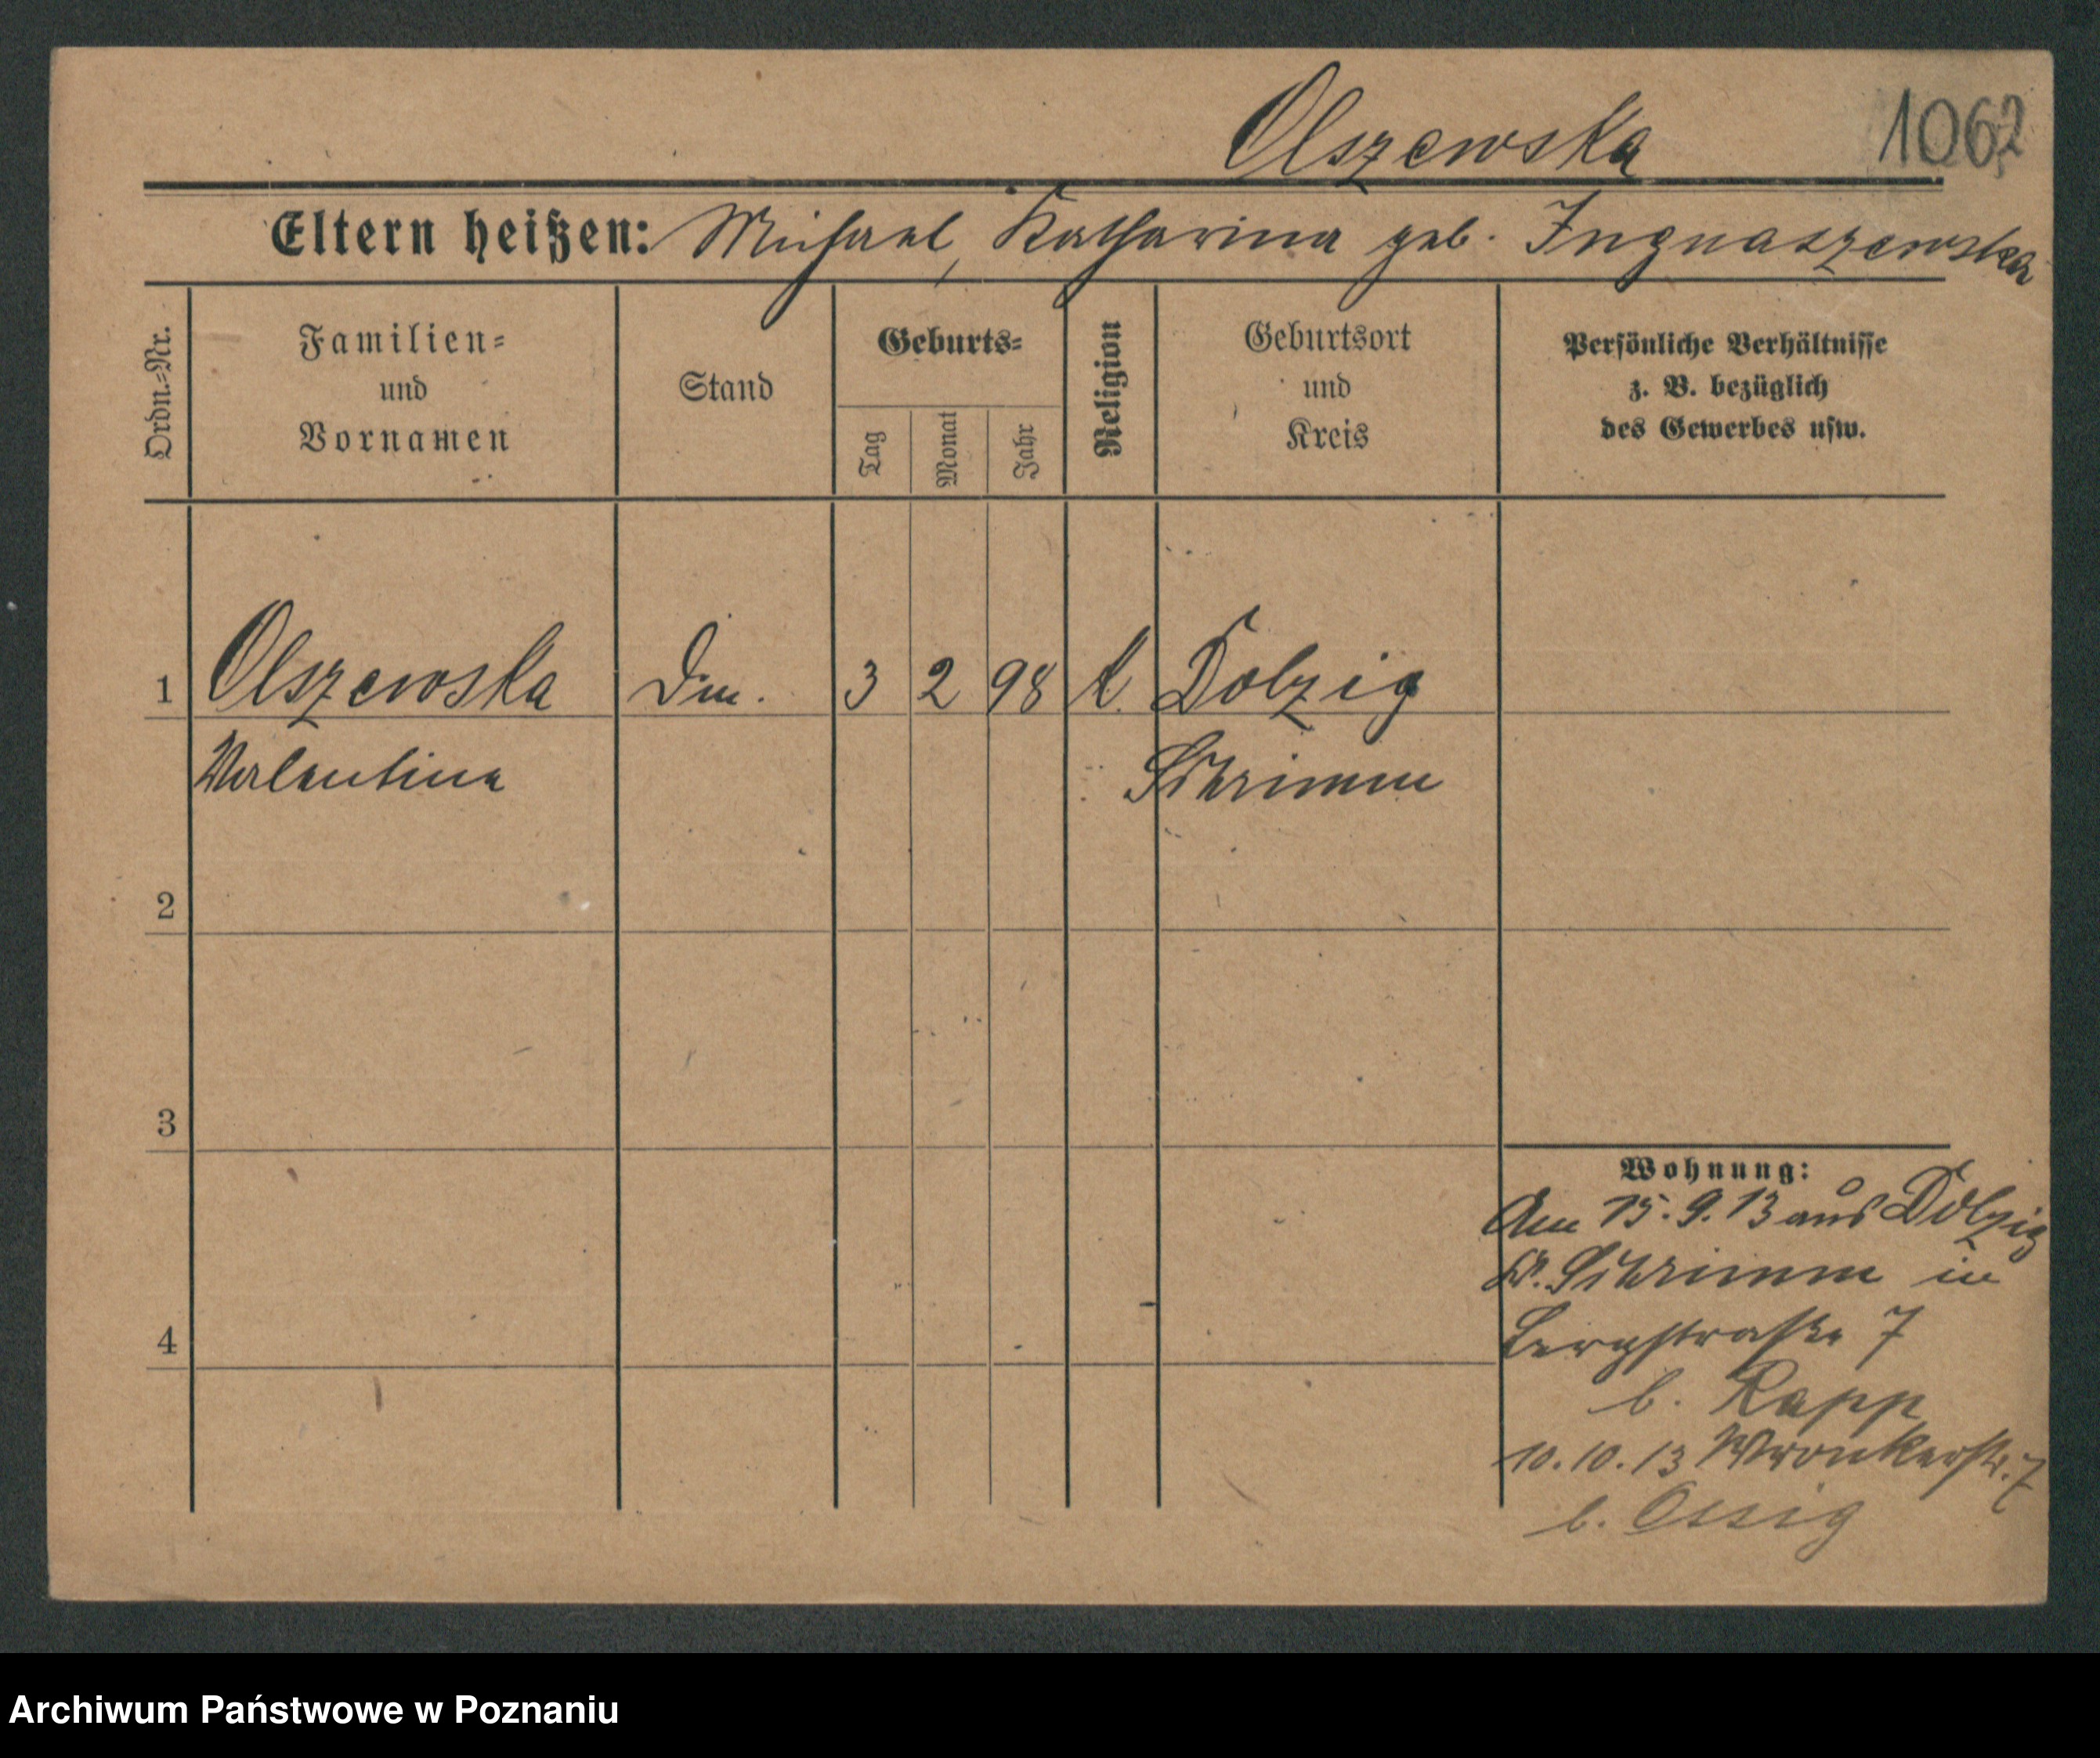 Olszewska 1062
Eltern heißen: Michael, Katharina geb. Ingnaszewska
Ordn.=Nr.
Familien=
und
Vornamen
Stand
Geburts=
Tag
Monat
Jahr
Religion
Geburtsort
und
Kreis
Persönliche Verhältnisse
z. B. bezüglich
des Gewerbes usw.
1 Olszewska Dm. 3 2 98 k. Dolzig
Valentina Schrimm
2
3
4
Wohnung:
Am 15.9.13 aus Dolzig
Kr. Schrimm in
Bergstraße 7
b. Rapp
10.10.13 Wronkerstr. 7
b. Ossig
Archiwum Państwowe w Poznaniu